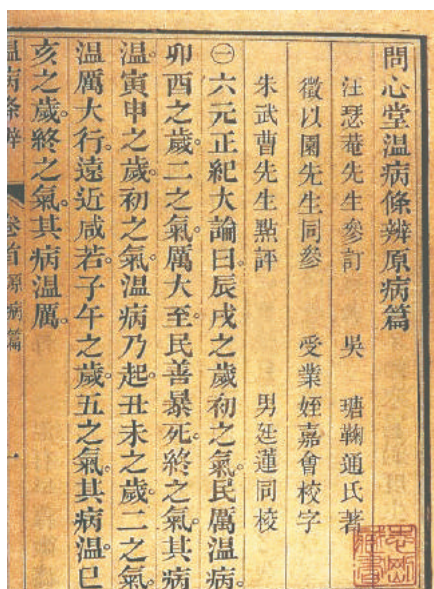 問心堂温病條辨原病篇
汪瑟菴先生參訂 吳 瑭鞠通氏著
徵以園先生同參 受業姪嘉會校字
朱武曹先生點評 男廷蓮同校
㊀六元正紀大論曰辰戌之歲初之氣民厲温病。
卯酉之歲二之氣厲大至民善暴死終之氣其病
温。寅申之歲初之氣温病乃起丑未之歲二之氣。
温厲大行。遠近咸若。子午之歲五之氣其病温巳
亥之歲。終之氣。其病温厲。
温病條辨 卷首 原病篇 一